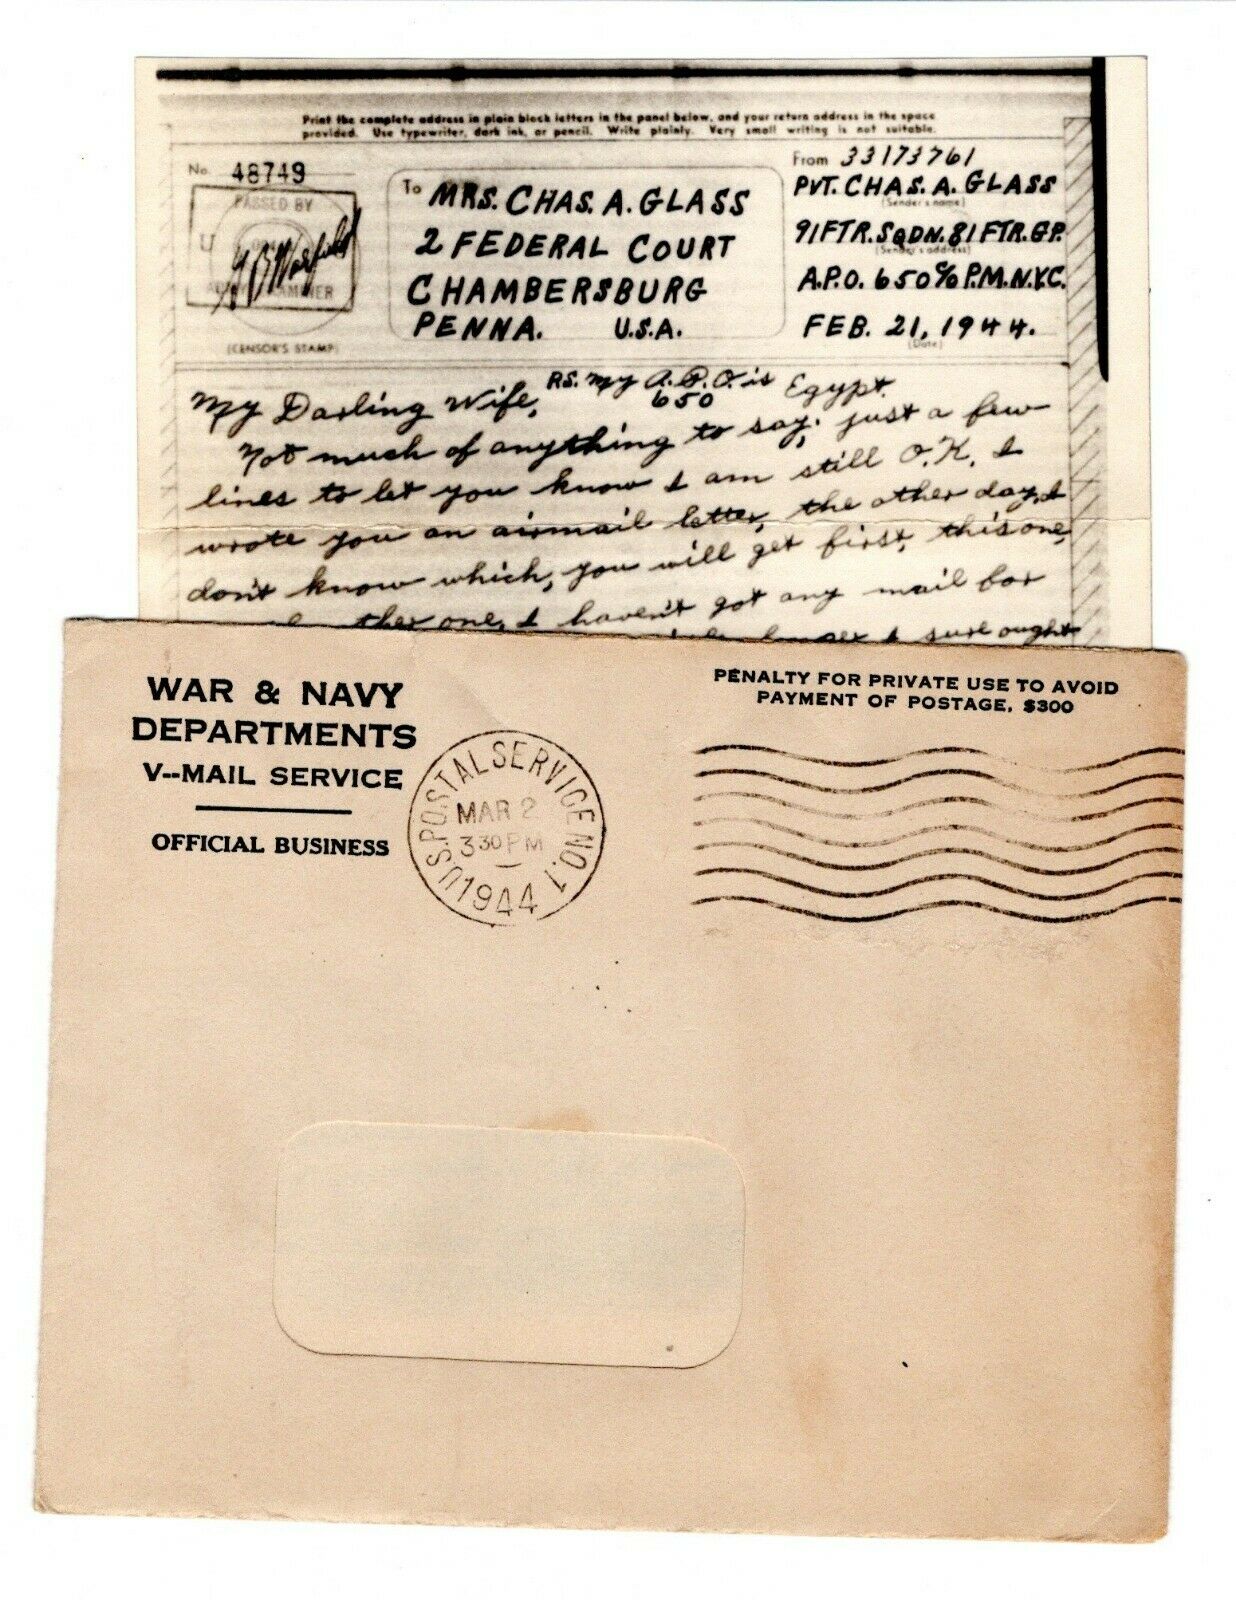 Print the complete address in plain block letters in the panel below, and your return address in the space
provided. Use typewriter, dark ink, or pencil. Write plainly. Very small writing is not suitable.
No. 48749
PASSED BY
U
ARMY EXAMINER
(CENSOR'S STAMP)
To
MRS. CHAS. A. GLASS
2 FEDERAL COURT
CHAMBERSBURG
PENNA. U.S.A.
From 33173761
PVT. CHAS. A. GLASS
(Sender's name)
91 FTR. SQDN. 81 FTR. GP.
(Sender's address)
A.P.O. 650 c/o P.M.N.Y.C.
FEB. 21, 1944.
(Date)
My Darling Wife, P.S. my A.P.O. is Egypt.
650
Not much of anything to say, just a few
lines to let you know I am still O.K. I
wrote you an airmail letter, the other day, I
don't know which, you will get first, this one,
other one, I haven't got any mail for
I sure ought
WAR & NAVY
DEPARTMENTS
V--MAIL SERVICE
OFFICIAL BUSINESS
U.S. POSTAL SERVICE NO. 1
MAR 2
3 30 PM
1944
PENALTY FOR PRIVATE USE TO AVOID
PAYMENT OF POSTAGE, $300